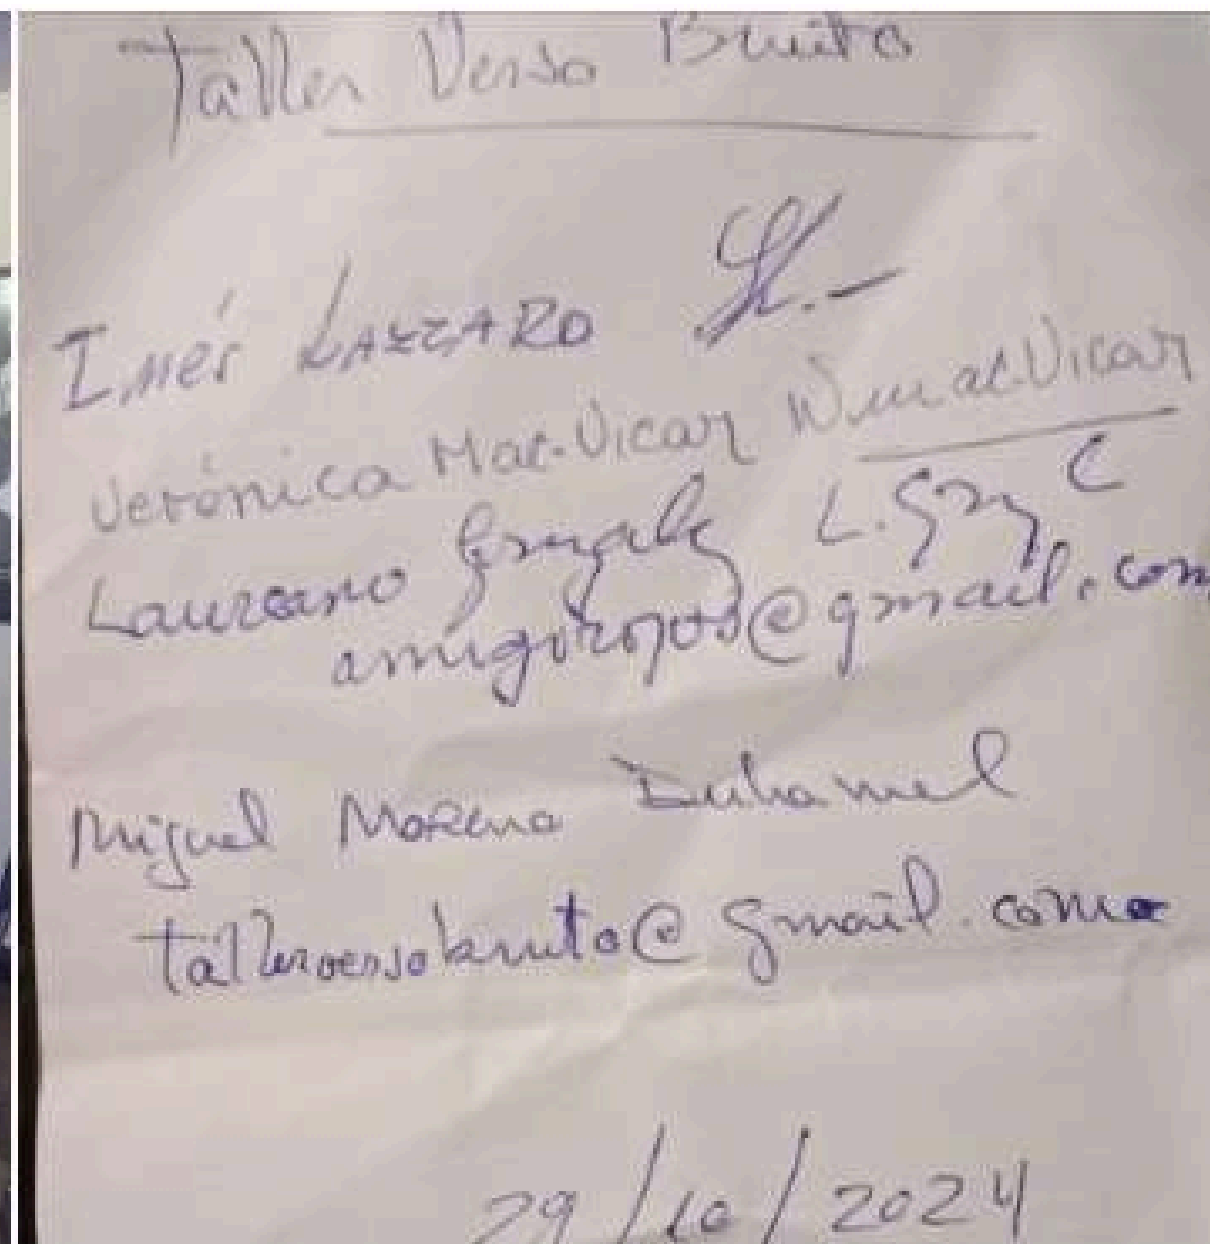 Taller Verso Bruto
Inés LAZZARO
Verónica Mac-Vicar VMacVicar
Laureano González L. Gnz C
amigorojovo@gmail.com
Miguel Moreno Duhamel
tallerversobruto@gmail.com
29/10/2024